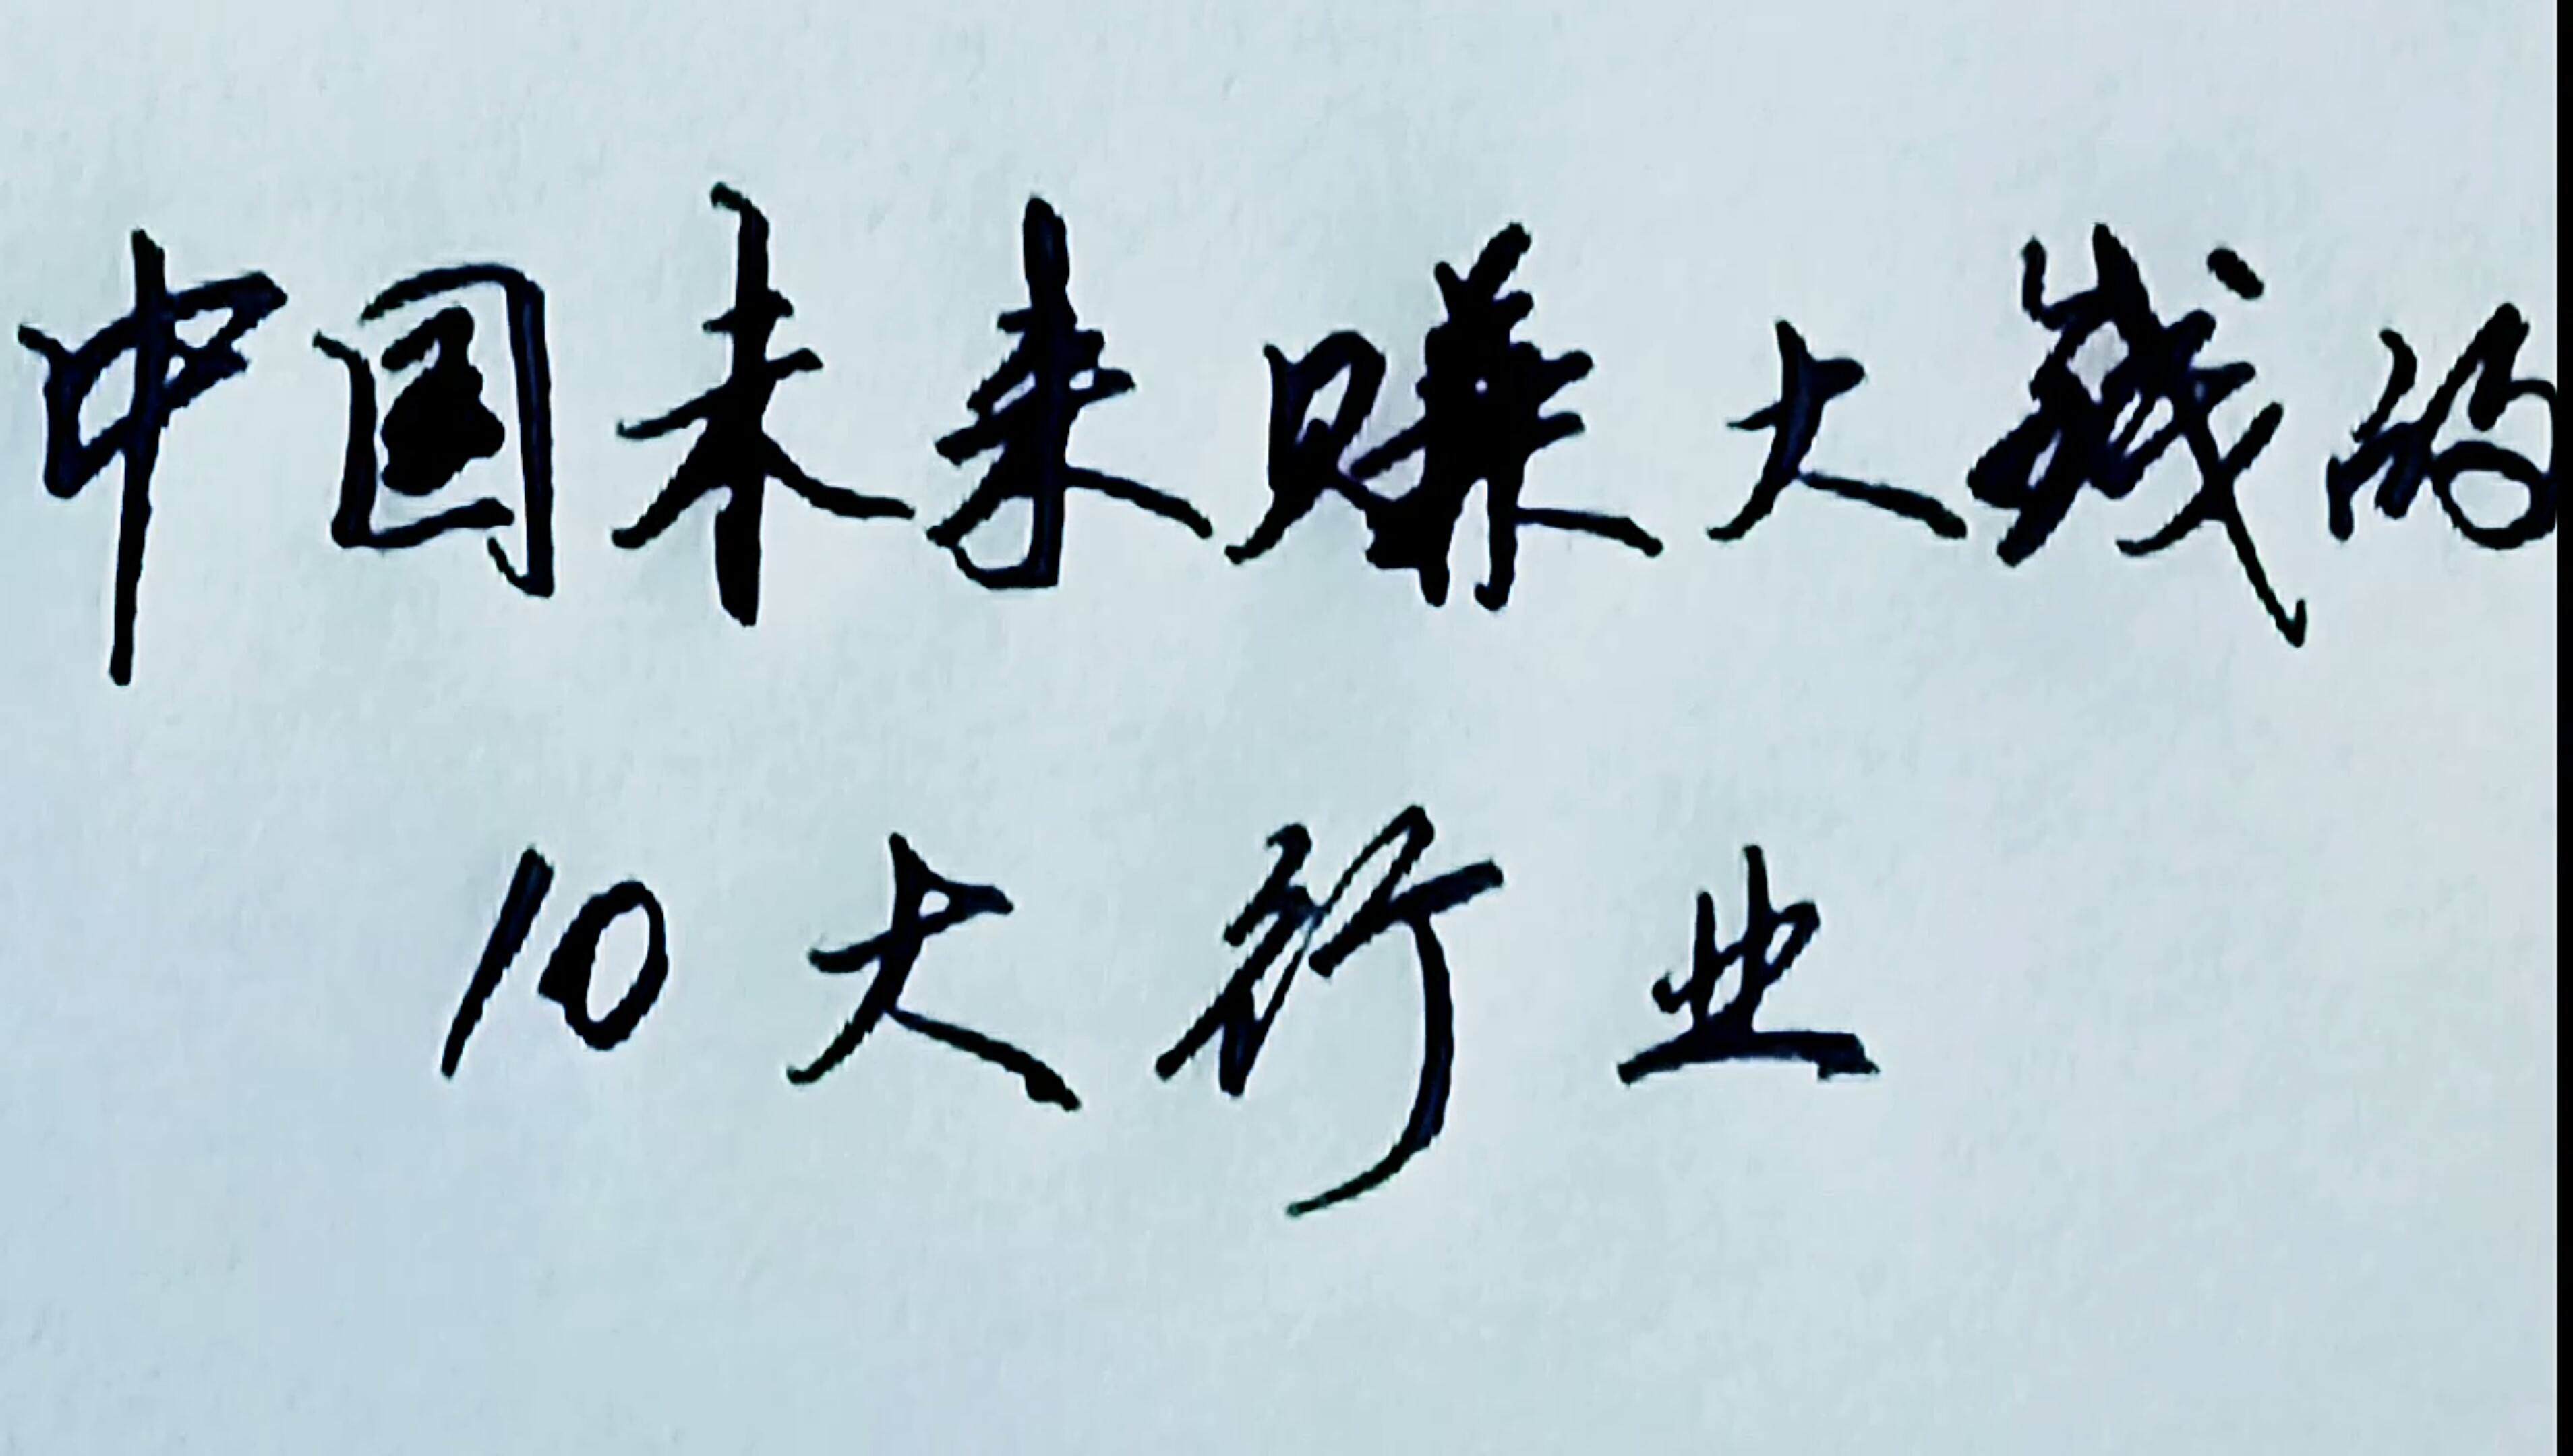 中国未来赚大钱的
10大行业